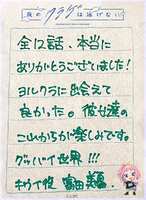 夜のクラゲは泳げない
全12話、本当に
ありがとうございました!
ヨルクラに出会えて
良かった。彼女達の
これからが楽しみです。
グッバイ世界!!!
キウイ役 富田美憂